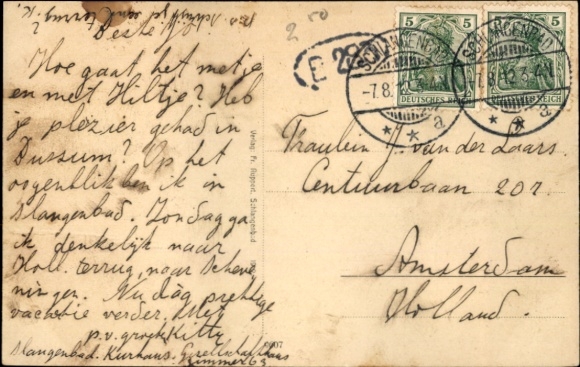 Beste
Hoe gaat het met je
en met Hiltje? Heb
je plezier gehad in
Bussum? Op het
oogenblik ben ik in
Slangenbad. Zondag ga
ik denkelijk naar
Holl. terrug, naar Scheve
ningen. Nu dag prettige
vacantie verder.
p.v. groet Kitty
Slangenbad. Kurhaus. Gesellschaftshaus
Zimmer 63
2 50
E 29
SCHLANGENBAD
-7.8.
a
5 5
DEUTSCHES REICH
SCHLANGENBAD
7.8.12.3-4N
a
5 5
DEUTSCHES REICH
Verlag Fr. Ruppert, Schlangenbad
Fraulein J. van der Laars.
Centuurbaan 207.
Amsterdam
Holland.